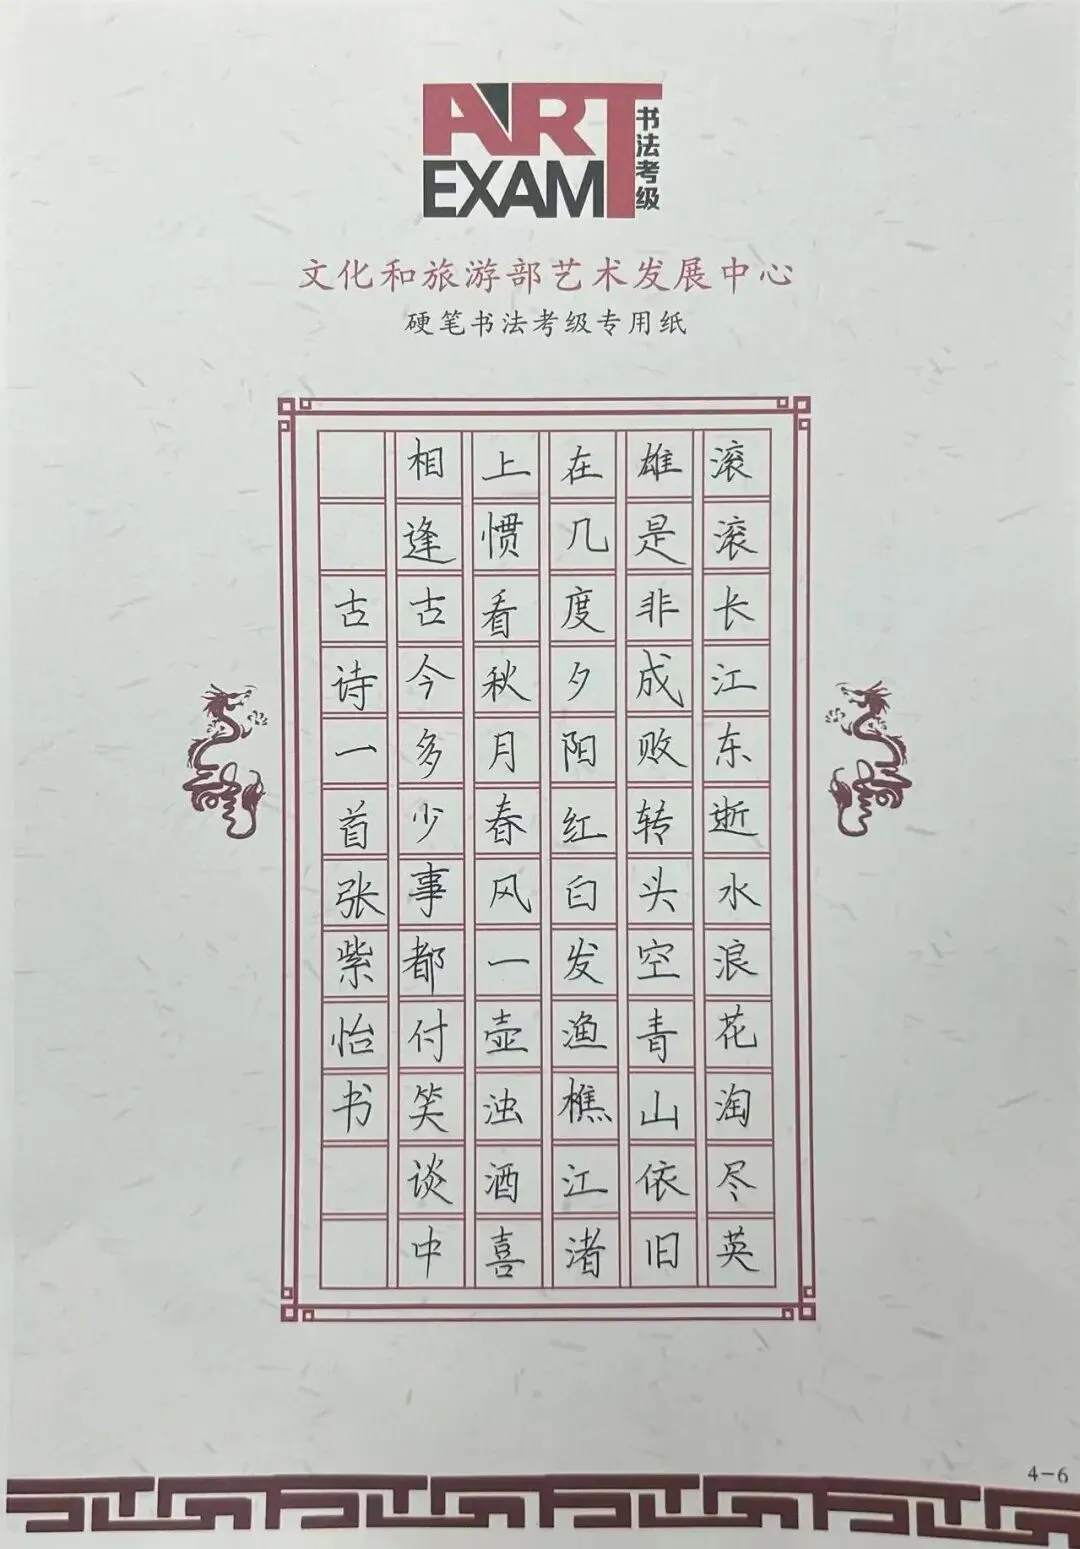 ART
EXAM
书法考级
文化和旅游部艺术发展中心
硬笔书法考级专用纸
滚滚长江东逝水浪花淘尽英
雄是非成败转头空青山依旧
在几度夕阳红白发渔樵江渚
上惯看秋月春风一壶浊酒喜
相逢古今多少事都付笑谈中
古诗一首张紫怡书
4-6